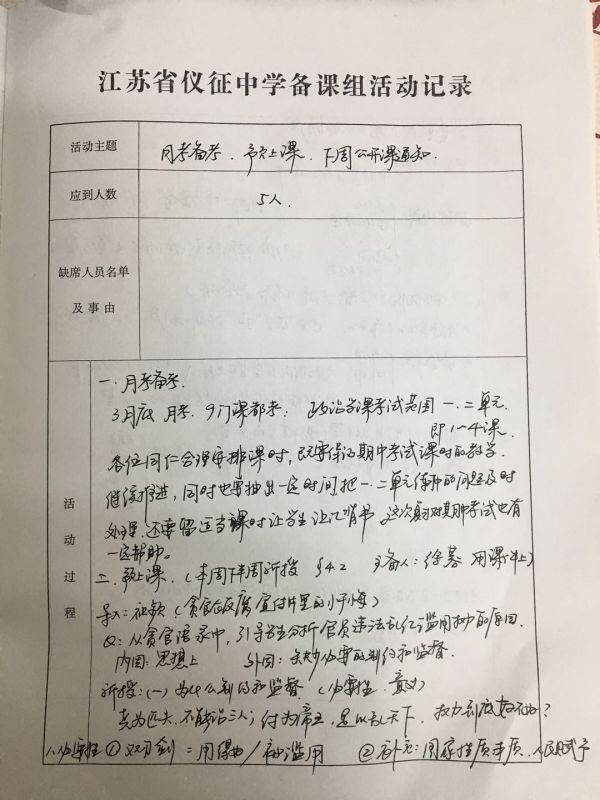 江苏省仪征中学备课组活动记录
活动主题
月考备考、 上课、下周公开课通知.
应到人数
5人.
缺席人员名单
及事由
活动过程
一.月考备考.
3月底 月考. 9门课都考: 政治学课考试范围 一.二单元.
即1~4课.
各位同仁合理安排课时,既要保证期中考试课时的教学
继续推进,同时也要抽出一定时间把一.二单元 的问题及时
处理.还要留适当课时让学生 背书.这次 对期中考试也有
一定帮助。
二. 上课.(本周下半周新授 §4.2 主备人:徐 用课件上)
导入: (贪官 片里的忏悔)
Q:从贪官语录中,引导学生分析官员违法乱纪滥用权力的原因.
内因:思想上 外因:缺少必要的制约和监督.
新授:(一)为什么制约和监督(必要性、意义)
尧为匹夫.不能治三人;付为帝王,足以乱天下. 权力到底好不好?
1.必要性 ①双刃剑:用得好/被滥用 ②补充:国家性质本质.人民赋予